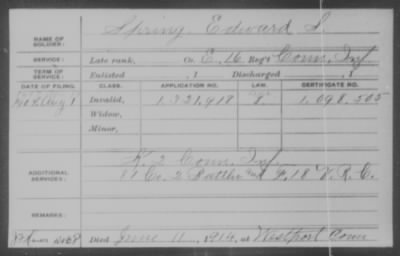 NAME OF SOLDIER: Spring, Edward S.
SERVICE: Late rank, Co. E, 16 Reg't Conn. Inf.
TERM OF SERVICE: Enlisted , 1 Discharged , 1
DATE OF FILING. CLASS. APPLICATION NO. LAW. CERTIFICATE NO.
Aug 1 Invalid, 1.321.918 1.098.505
Widow,
Minor,
ADDITIONAL SERVICES: K. 2 Conn. Inf.
11 Co. 2 Battln and F, 18 V. R. C.
REMARKS:
Died June 11, 1914, at Westport Conn